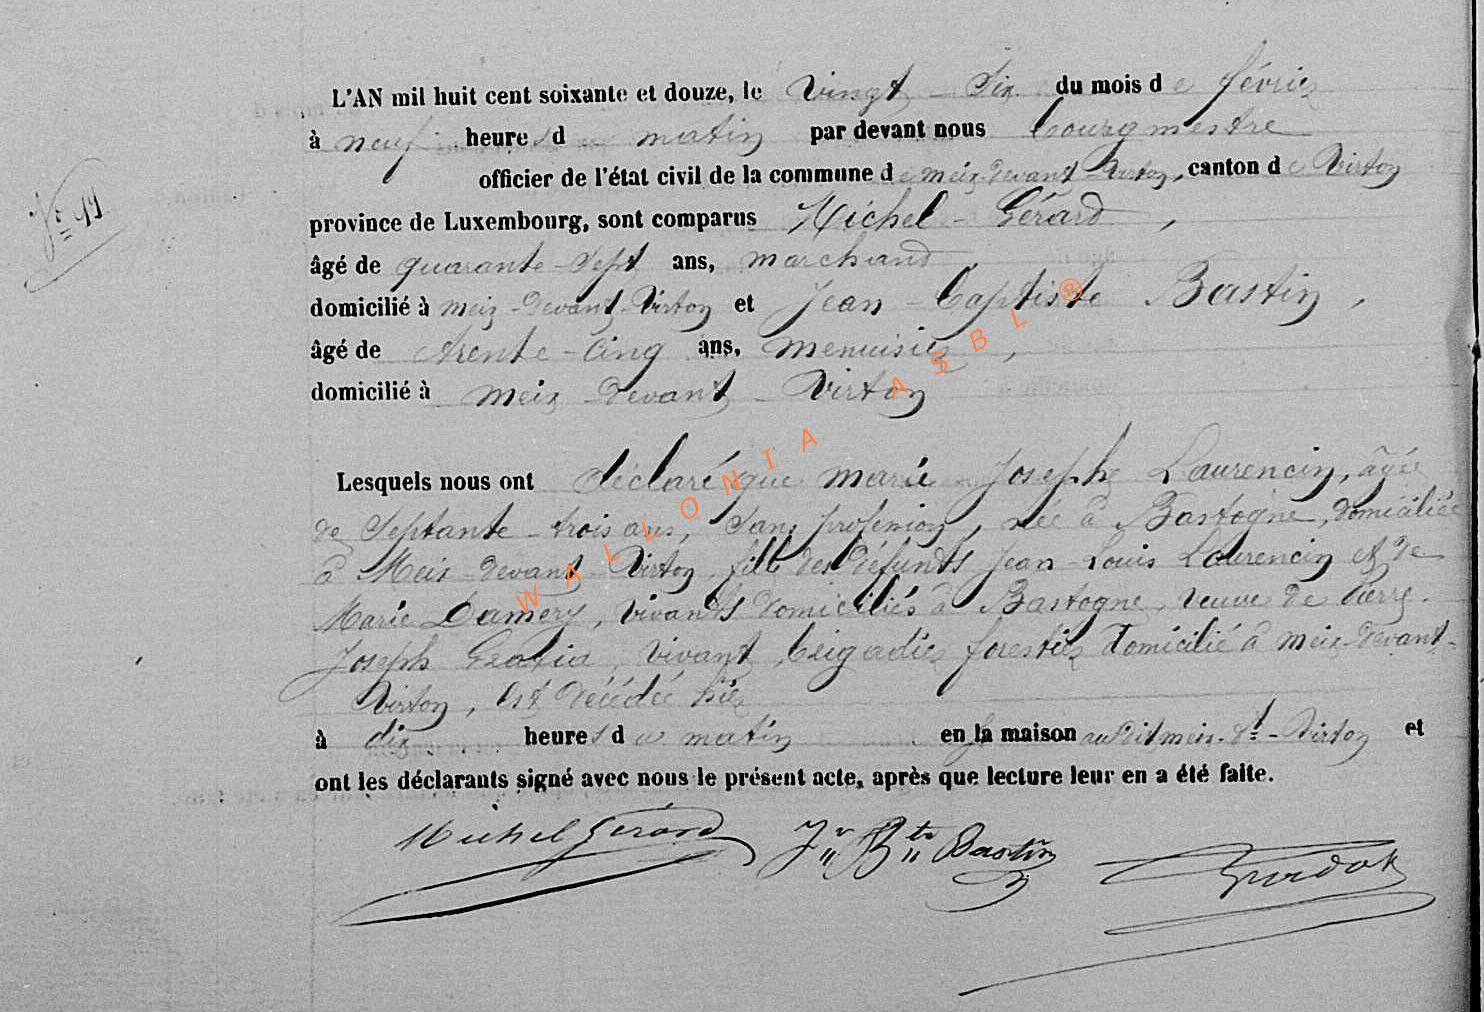 L'AN mil huit cent soixante et douze, le vingt-six du mois de février
à neuf heures du matin par devant nous bourgmestre
officier de l'état civil de la commune de meix-devant-Virton, canton de Virton
N° 11
province de Luxembourg, sont comparus Michel Gérard,
âgé de quarante-sept ans, marchand,
domicilié à meix-devant-Virton et Jean-Baptiste Bastin,
âgé de trente-cinq ans, menuisier,
domicilié à meix-devant-Virton
Lesquels nous ont déclaré que marie Joseph Laurencin, âgée
de septante-trois ans, sans profession, née à Bastogne, domiciliée
à Meix-devant-Virton, fille des défunts Jean-Louis Laurencin et de
Marie Damery, vivants domiciliés à Bastogne, veuve de Pierre
Joseph, vivant brigadier forestier domicilié à meix-devant-
Virton, est décédée hier
à dix heures du matin en la maison audit meix-dt-Virton et
ont les déclarants signé avec nous le présent acte, après que lecture leur en a été faite.
Michel Gérard Jn Bte Bastin
WALLONIA ASBL ®